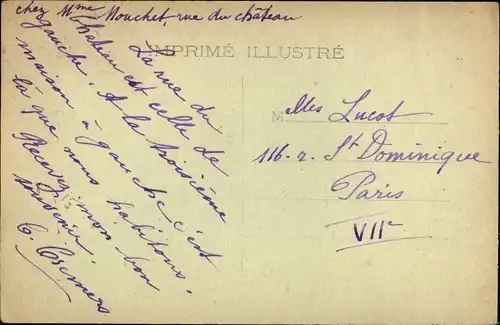 chez Mme Mouchet, rue du château
IMPRIMÉ ILLUSTRÉ
La rue du
château est celle de
gauche. A la troisième
maison à gauche c'est
là que nous habitons.
Recevez mon bon
souvenir.
C. Cremers
Melles Lucot
116 - r. St Dominique
Paris
VIIe